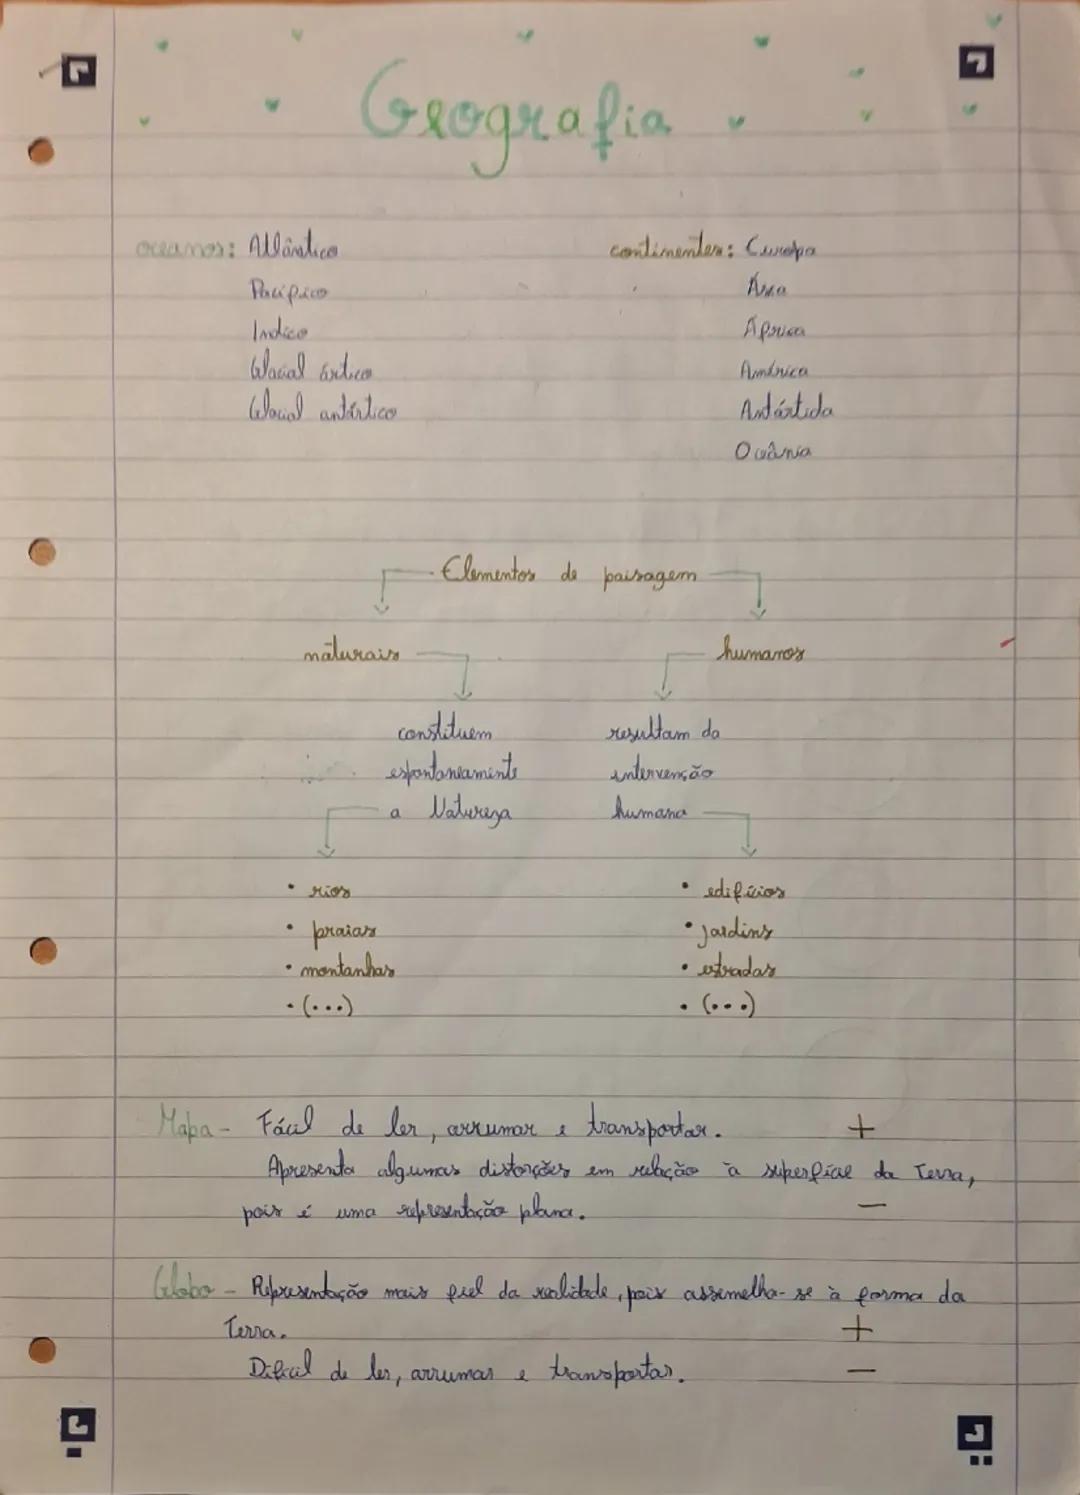 Geografia
oceanos: Atlântico
Pacífico
Indico
Glacial ártico
Glacial antártico
continentes: Europa
Ásia
África
América
Antártida
Oceânia
Elementos de paisagem
naturais
humanos
constituem
espontaneamente
a Natureza
resultam da
intervenção
humana
• rios
• praias
• montanhas
• (...)
• edifícios
• jardins
• estradas
• (...)
Mapa - Fácil de ler, arrumar e transportar. +
Apresenta algumas distorções em relação à superfície da Terra,
pois é uma representação plana. -
Globo - Representação mais fiel da realidade, pois assemelha-se à forma da
Terra. +
Difícil de ler, arrumar e transportar. -